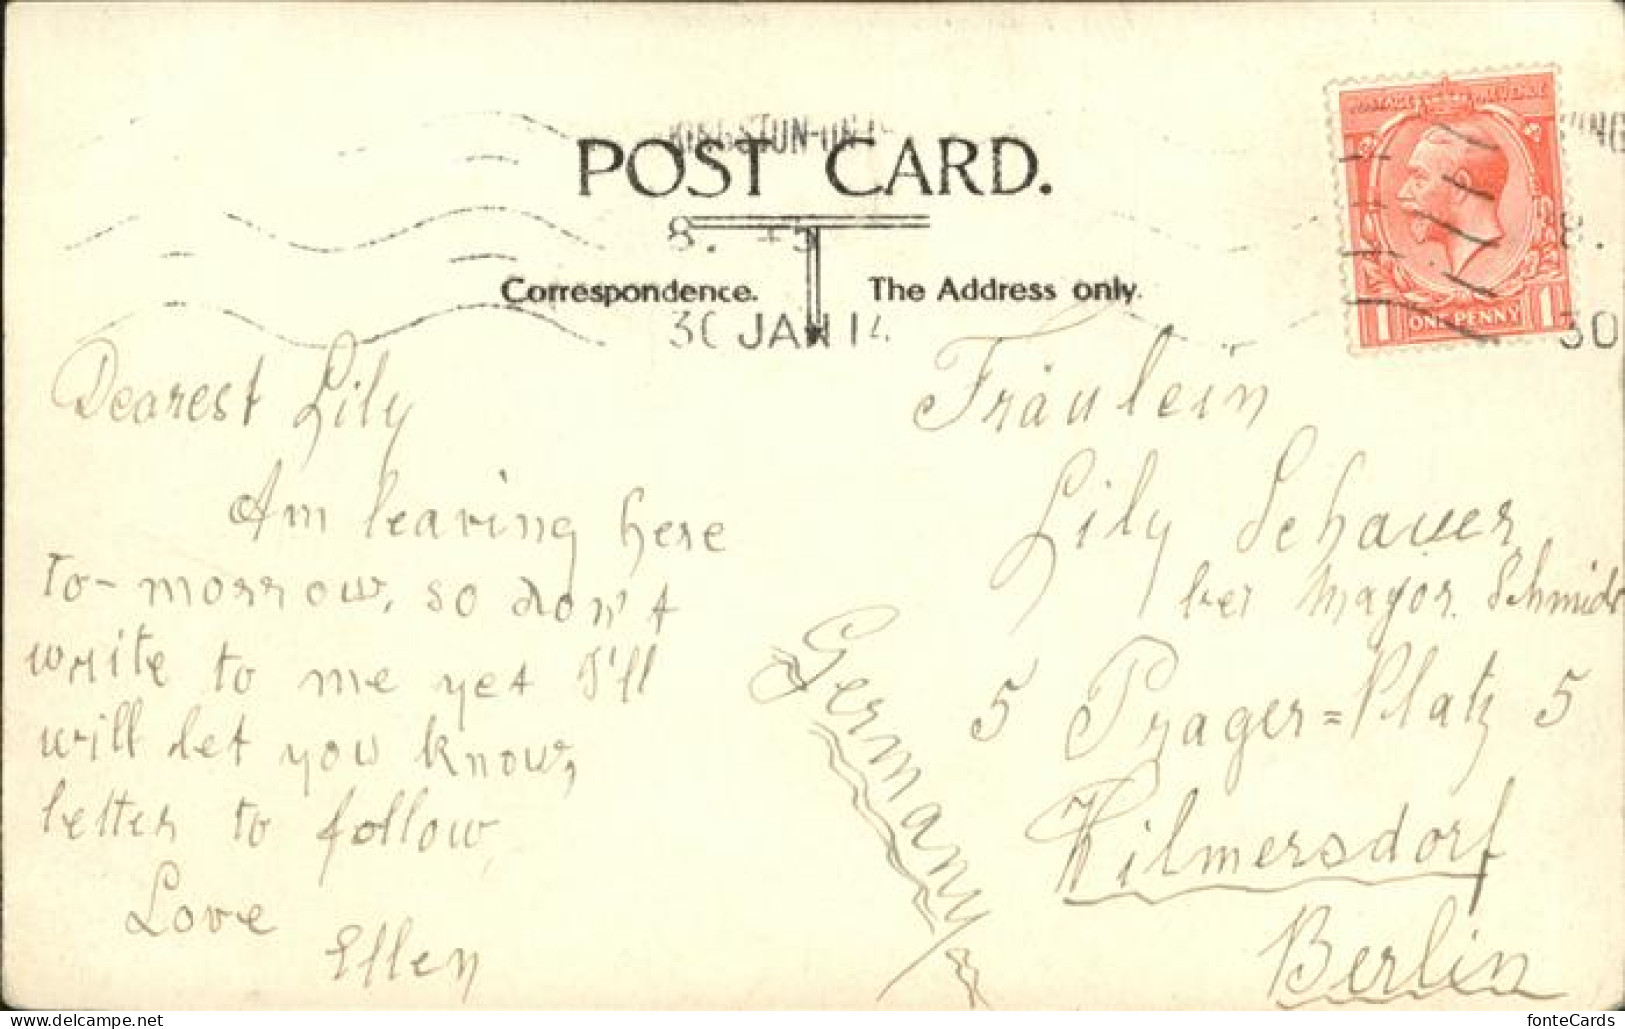 POST CARD.
Correspondence.
The Address only.
KINGSTON-ON
8. 45
30 JAN 14
POSTAGE REVENUE
1 ONE PENNY 1
8.
30
Dearest Lily
Am leaving here
to-morrow, so don't
write to me yet I'll
will let you know,
letter to follow,
Love
Ellen
Fräulein
Lily Schauer
bei Mayor Schmidt
5 Prager=Platz 5
Wilmersdorf
Berlin
Germany
fonteCards